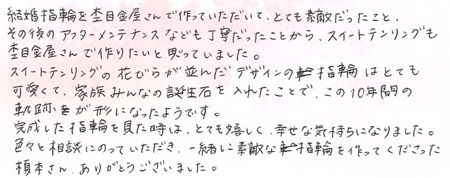 結婚指輪を杢目金屋さんで作っていただいて、とても素敵だったこと、
その後のアフターメンテナンスなども丁寧だったことから、スイートテンリングも
杢目金屋さんで作りたいと思っていました。
スイートテンリングの花びらが並んだデザインの指輪はとても
可愛くて、家族みんなの誕生石を入れたことで、この10年間の
軌跡が形になったようです。
完成した指輪を見た時は、とても嬉しく、幸せな気持ちになりました。
色々と相談にのっていただき、一緒に素敵な指輪を作ってくださった
榎本さん、ありがとうございました。